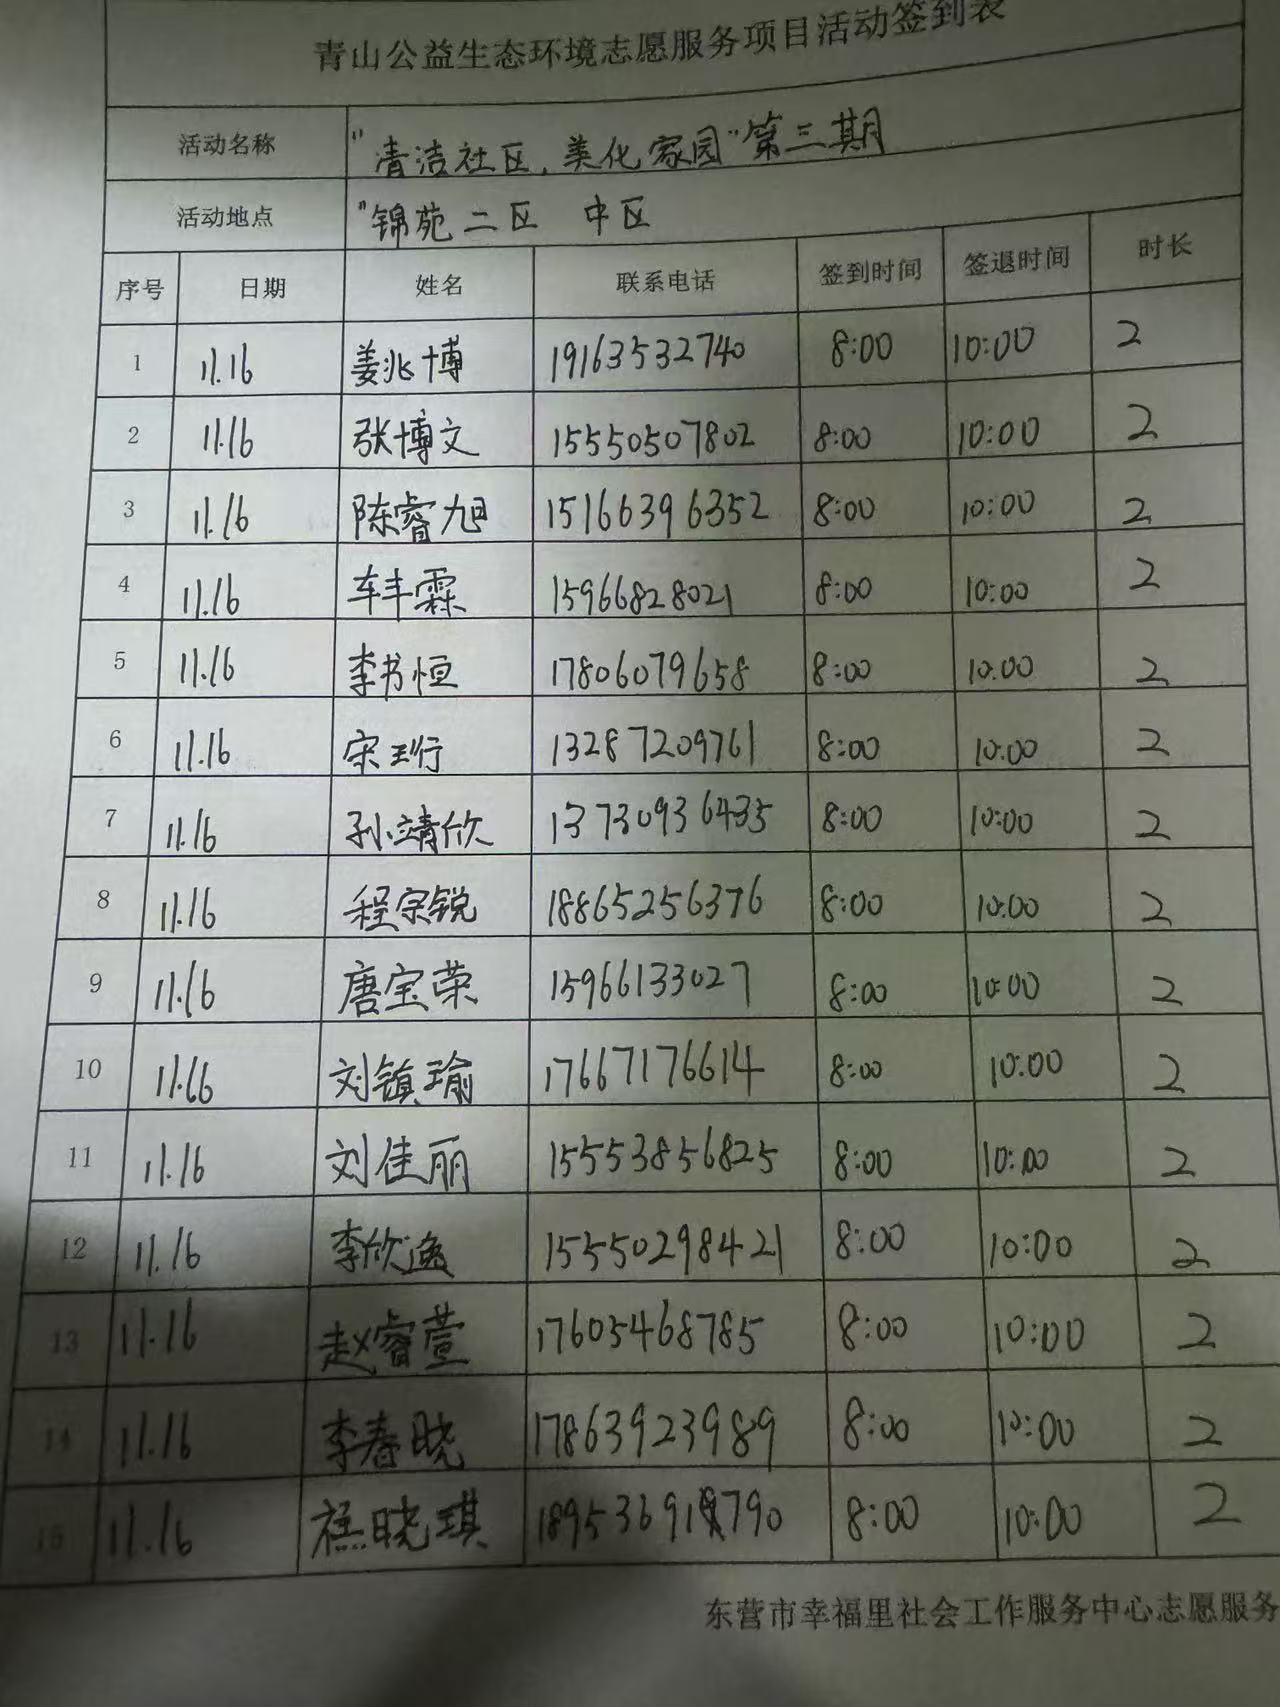 青山公益生态环境志愿服务项目活动签到表
活动名称 "清洁社区,美化家园"第三期
活动地点 "锦苑二区 中区
序号 日期 姓名 联系电话 签到时间 签退时间 时长
1 11.16 姜兆博 19163532740 8:00 10:00 2
2 11.16 张博文 15550507802 8:00 10:00 2
3 11.16 陈睿旭 15166396352 8:00 10:00 2
4 11.16 车丰霖 15966828021 8:00 10:00 2
5 11.16 李书恒 17806079658 8:00 10:00 2
6 11.16 宋珩 13287209761 8:00 10:00 2
7 11.16 孙靖欣 13730936435 8:00 10:00 2
8 11.16 程宗锐 18865256376 8:00 10:00 2
9 11.16 唐宝荣 15966133027 8:00 10:00 2
10 11.16 刘镇瑜 17667176614 8:00 10:00 2
11 11.16 刘佳丽 15553856825 8:00 10:00 2
12 11.16 李欣逸 15550298421 8:00 10:00 2
13 11.16 赵睿萱 17605468785 8:00 10:00 2
14 11.16 李春晓 17863923989 8:00 10:00 2
15 11.16 晓琪 8:00 10:00 2
东营市幸福里社会工作服务中心志愿服务